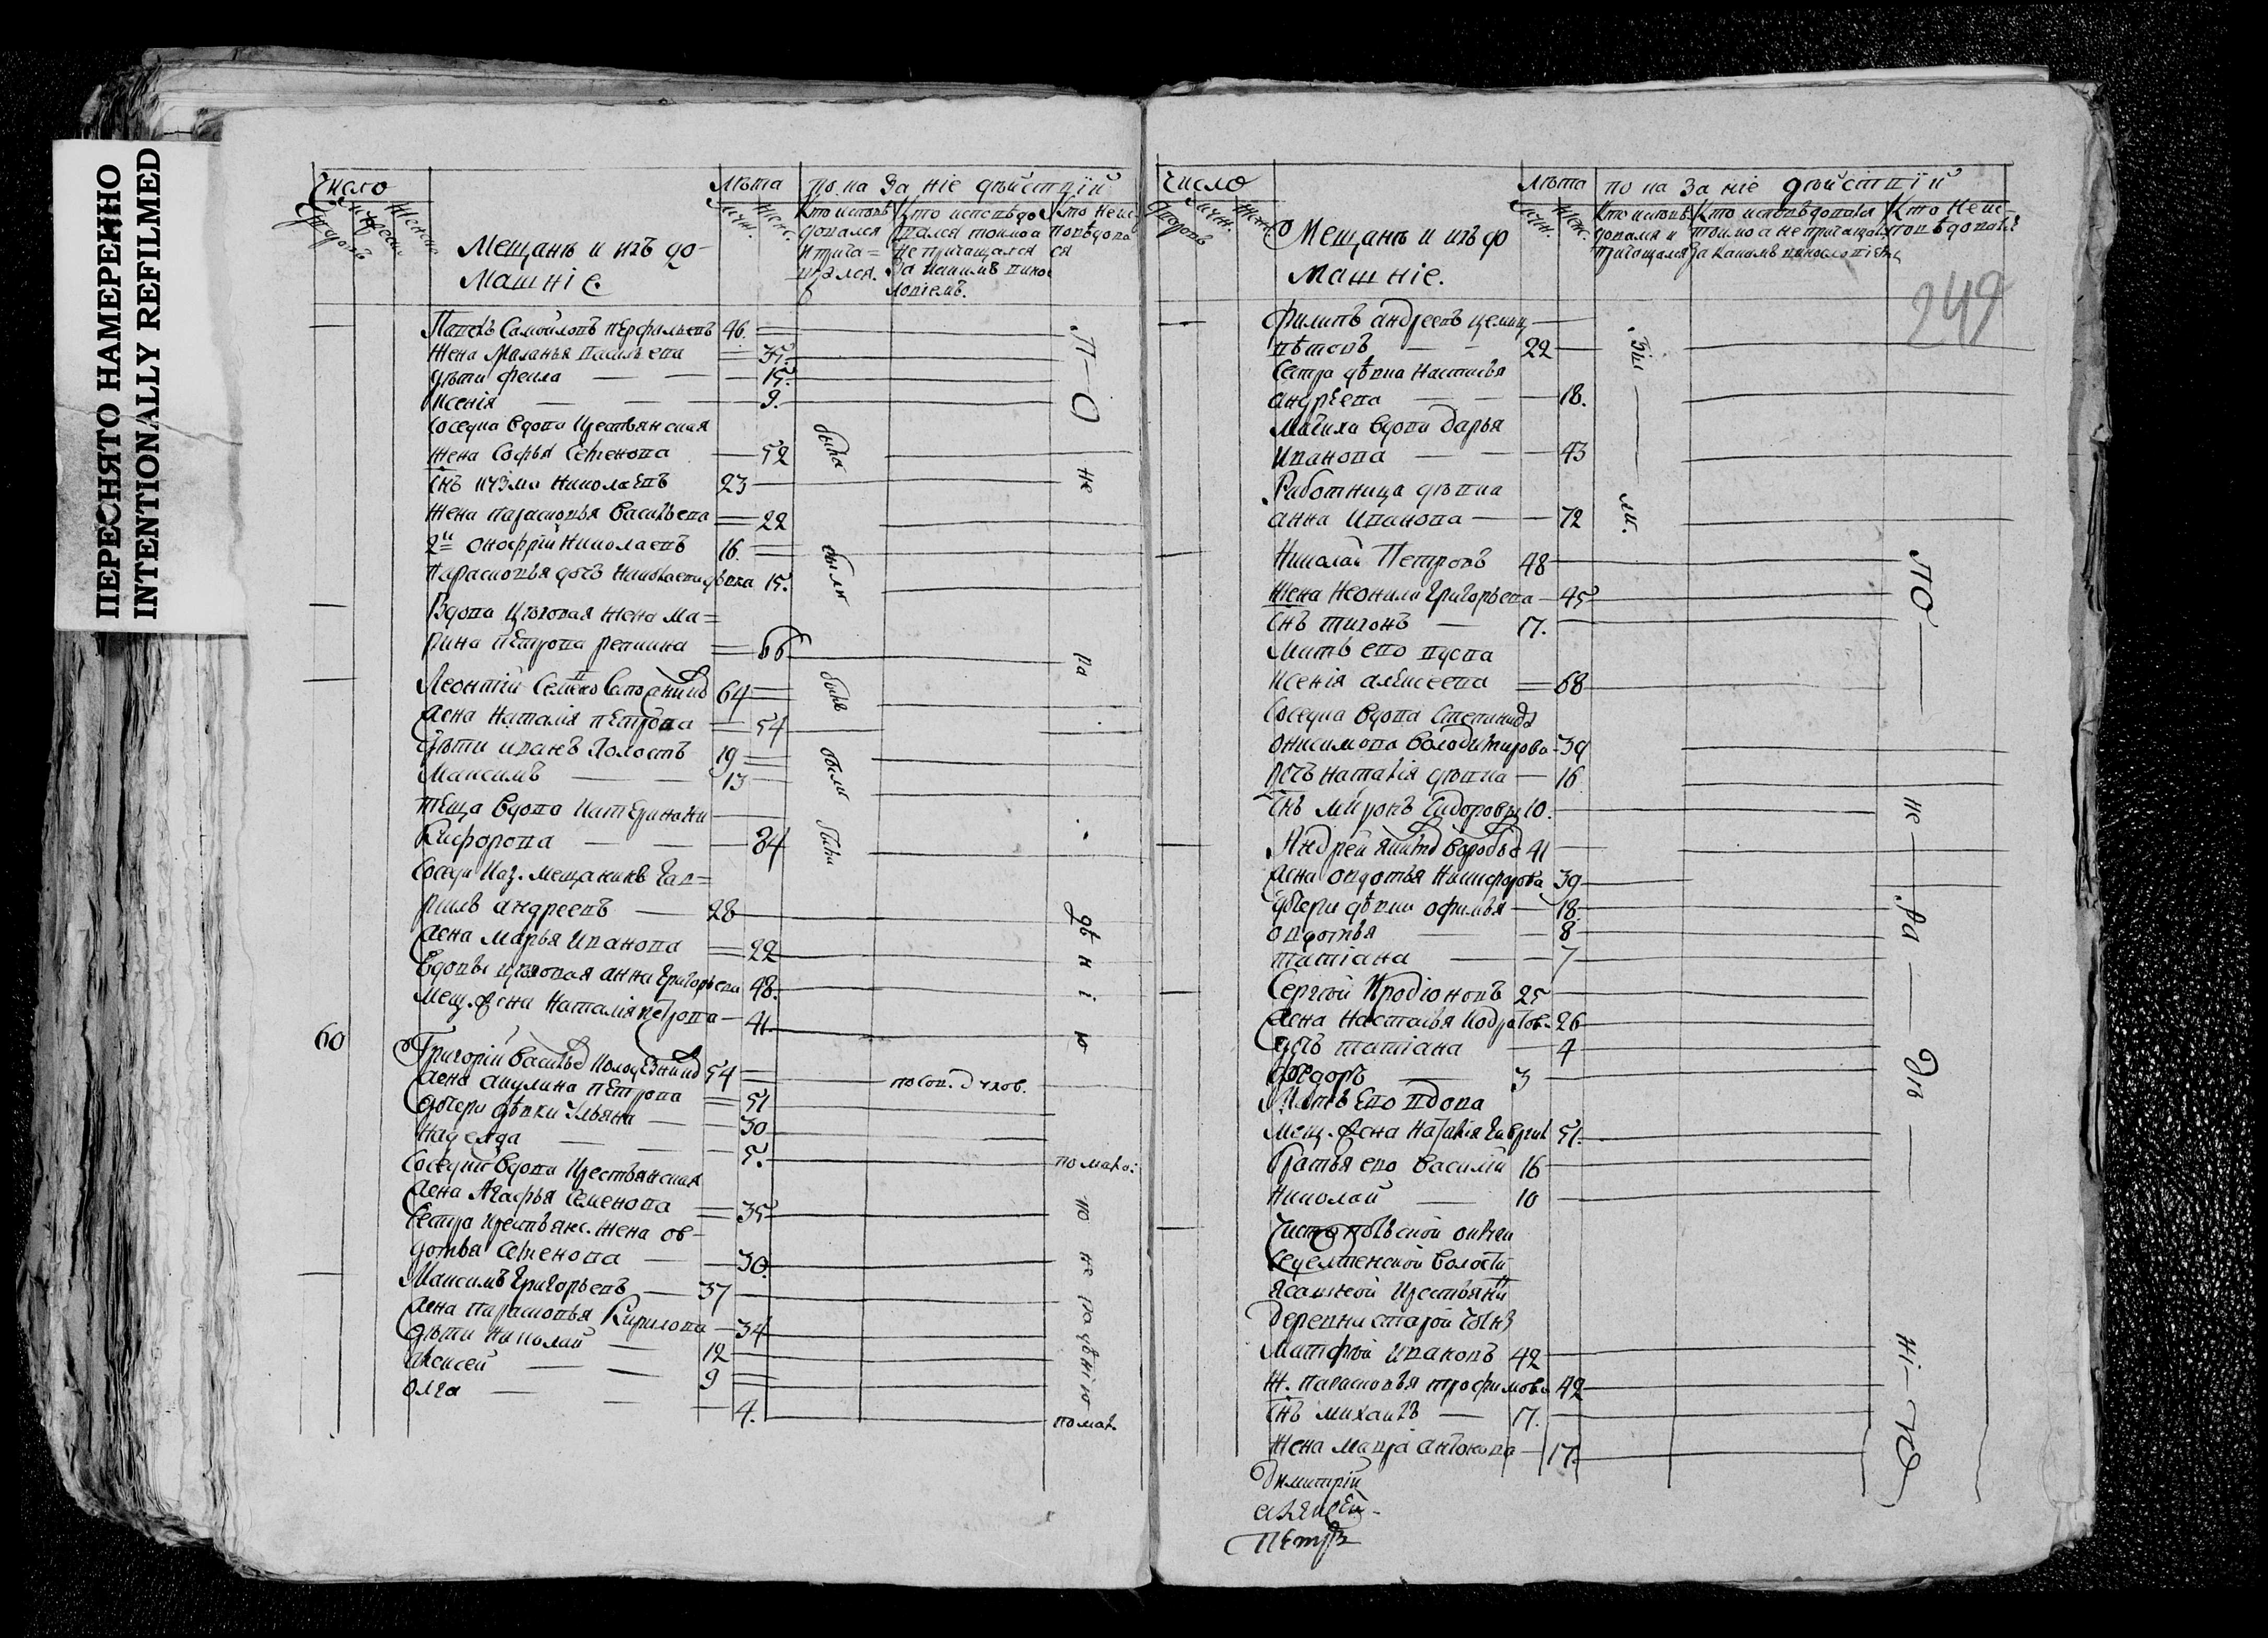 ПЕРЕСНЯТО НАМЕРЕННО
INTENTIONALLY REFILMED
Число
Дворовъ
Мужеска
Женска
Мещанъ и ихъ до-
машніе.
Лѣта
Мужн.
Женс.
показаніе дѣйствій
Кто исповѣ
довался
и прича=
щался.
Кто исповѣдо
вался токмо а
не причащался
за какимъ вино
ловіемъ.
Кто неис
повѣдова
ся
Павелъ Самойловъ Перфильевъ 46.
жена Маланья Васильева 35.
дѣти Фекла 15.
Ксенія 9.
соседка вдова крестьянская
жена Софья Семенова 52
снъ Кузма Николаевъ 23
жена Парасковья Васильева 22
2й Онофрій Николаевъ 16.
Парасковья дочь Николаева девка 15.
Вдова цеховая жена Ма=
рина Петрова 66
Леонтій Семено 64
жена Наталія Петрова 54
дѣти Иванъ холостъ 19
Максимъ 13
теща вдова Катерина Ни
кифорова 84
соседи Каз. мещанинъ Гав=
рилъ Андреевъ 28
жена Марья Иванова 22
Вдовы цеховая Анна Григорьева 48.
Мещ. жена Наталія Петрова 41.
60
Григорій Василье Колодезнико 54
жена Акулина Петрова 51
дочери дѣвки Ульяна 30
Надежда 5.
соседки вдова крестьянская
жена Агафья Семенова 35
сестра крестьянс. жена ов-
дотья Семенова 30.
Максимъ Григорьевъ 37
жена Парасковья Кирилова 34
дѣти Николай 12
Алексей 9
Олга 4.
была
были
былъ
были
была
П О
не
ра
дѣ
н
і
ю
по сов. духов.
по мало:
по
не
ра
дѣнію
по мал.
Число
Дворовъ
Мужн.
Женс.
Мещанъ и ихъ до
машніе.
Лѣта
Мужн.
Женс.
показаніе дѣйствій
Кто исповѣ
довался и
причащался
Кто исповѣдовался
токмо а не причащал
за какимъ винословіемъ
Кто неис-
повѣдовалс
249
Филипъ Андреевъ
22
сестра дѣвка Настасья
Андреева 18.
Мачиха вдова Дарья
Иванова 43
Работница дѣвка
Анна Иванова 72
Были.
Николай Петровъ 48
жена Неонила Григорьева 45
снъ Тихонъ 17.
Мать его вдова
Ксенія Алексеева 68
соседка вдова Степанида
Онисимова Володимирова 39
дочь Наталія девка 16
снъ Миронъ Сидоровъ 10.
Андрей 41
жена Овдотья Никифорова 39
дочери дѣвки Офимья 18.
Овдотья 8
Татіана 7
Сергѣй Иродіоновъ 25
жена Настасья Кодратов. 26
дочь Татіана 4
Федоръ 3
Мать его вдова
мещ. жена Наталія Гаврил 51.
Братья его Василій 16
Николай 10
Чистопольской округи
волости
ясашной крестьяни
деревни старой
Матфѣй Ивановъ 42
ж. Парасковья Трофимова 42
снъ Михаилъ 17.
жена Мавра Антонова 17.
Димитрій
Алексей
Петръ
ПО
не
Ра
дѣ
ні-ю